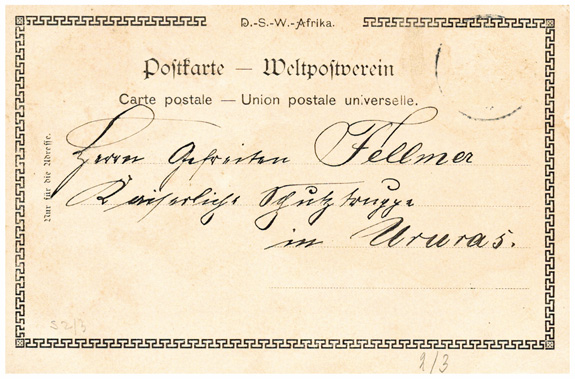 D.-S.-W.-Afrika.
Postkarte — Weltpostverein
Carte postale — Union postale universelle.
Nur für die Adresse.
Herrn Gefreiten Fellmer
Kaiserliche Schutztruppe
in Ururas.
S2/3
2/3